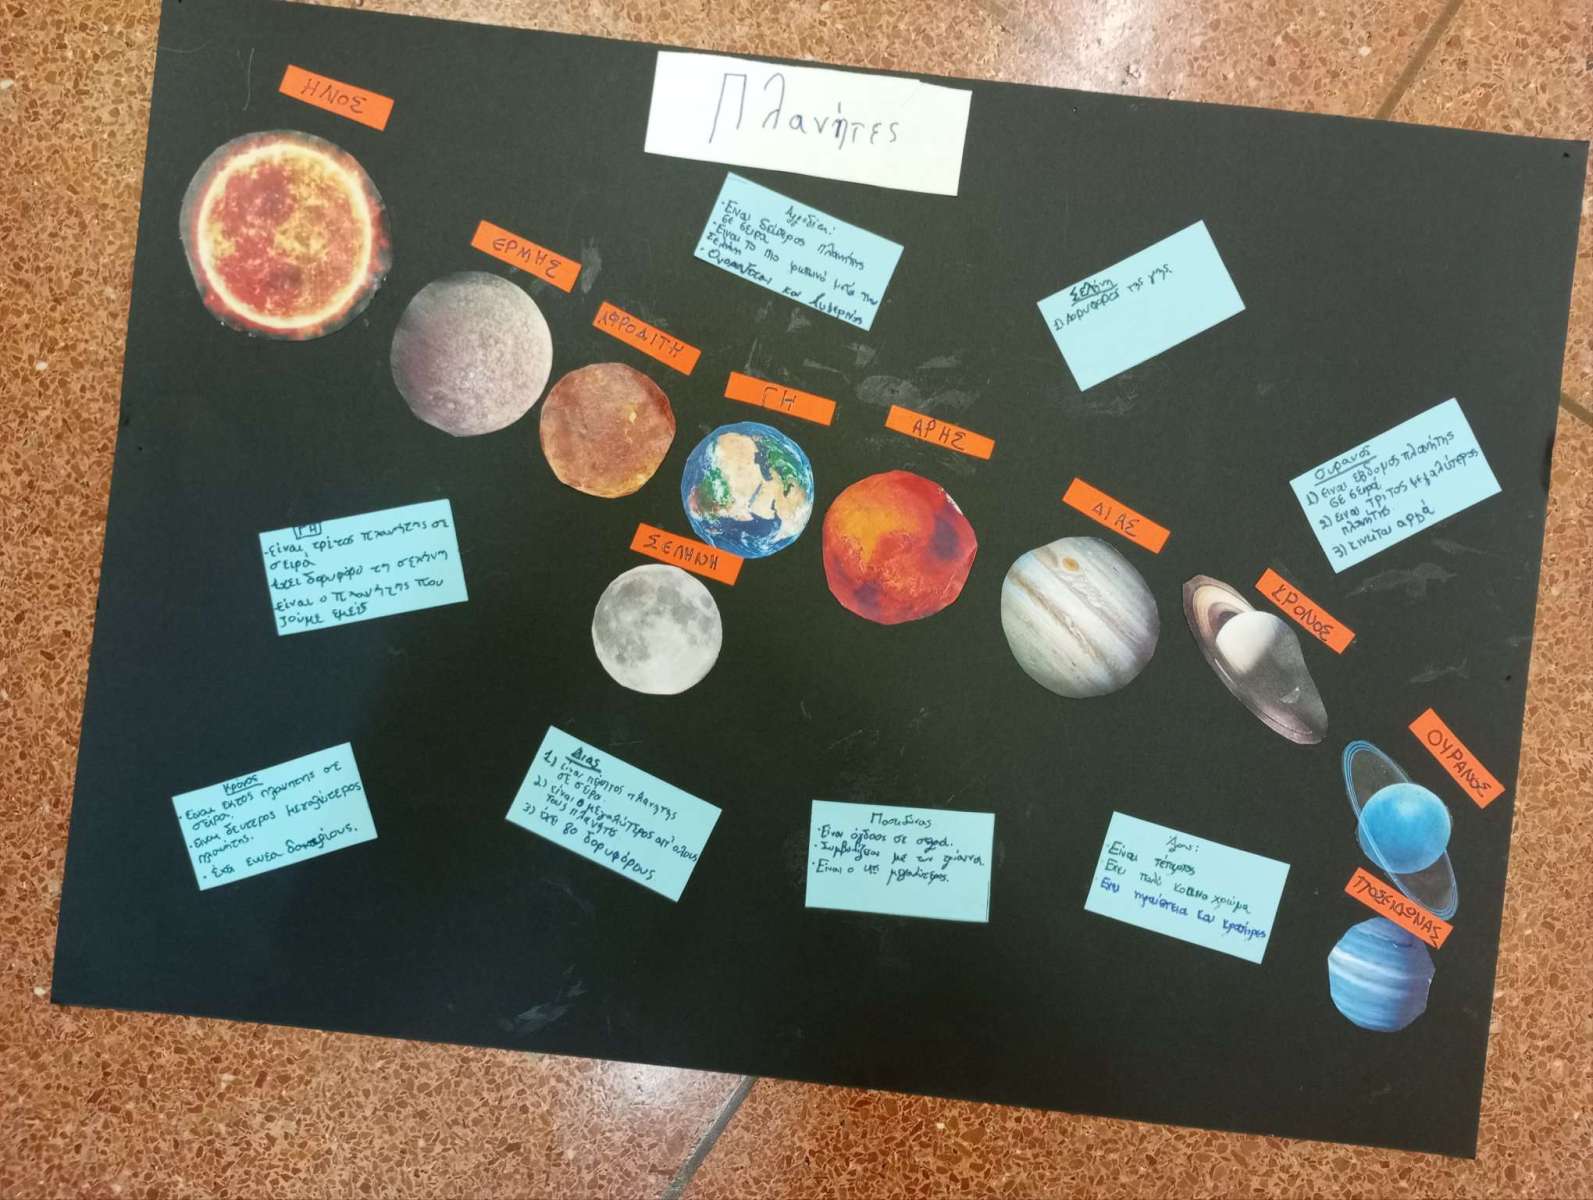 Πλανήτες
ΗΛΙΟΣ
ΕΡΜΗΣ
ΑΦΡΟΔΙΤΗ
ΓΗ
ΑΡΗΣ
ΣΕΛΗΝΗ
ΔΙΑΣ
ΚΡΟΝΟΣ
ΟΥΡΑΝΟΣ
ΠΟΣΕΙΔΩΝΑΣ
Αφροδίτη:
·Είναι δεύτερος πλανήτης
σε σειρά
·Είναι το πιο φωτεινό μετά την
σελήνη
Σελήνη
1) Δορυφόρος της γης
Ουρανός
1) είναι έβδομος πλανήτης
σε σειρά
2) είναι τρίτος μεγαλύτερος
πλανήτης
3) κινείται αργά
ΓΗ
·είναι τρίτος πλανήτης σε
σειρά
έχει δορυφόρο τη σελήνη
είναι ο πλανήτης που
ζούμε εμείς
Κρόνος
·Είναι έκτος πλανήτης σε
σειρά.
·Είναι δεύτερος μεγαλύτερος
πλανήτης.
·Έχει εννέα
Δίας
1) είναι πέμπτος πλανήτης
σε σειρά.
2) είναι ο μεγαλύτερος απ' όλους
τους πλανήτες
3) έχει 80 δορυφόρους
·Είναι όγδοος σε σειρά.
·Συμβολίζεται με την
·Είναι ο μεγαλύτερος.
Άρης:
·Είναι τέταρτος
·Έχει πολύ κόκκινο χρώμα
Έχει ηφαίστεια και κρατήρες